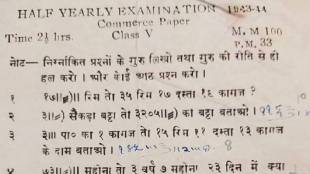 HALF YEARLY EXAMINATION 1943-44
Commerce Paper
Time 2½ hrs. Class V M. M 100
P. M. 33
नोट— निम्नांकित प्रश्नों के गुरु लिखो तथा गुर की रीति से ही
हल करो । और कोई आठ प्रश्न करो ।
१ रिम तो ३५ रिम १७ दस्ता १६ कागज ?
२ सैकड़ा बट्टा तो का बट्टा बताओ ।
३ ३॥) पा० का १ कागज तो १५ रिम ११ दस्ता १३ कागज
के दाम बताओ ।
४ महीना तो ३ वर्ष ७ महीना २३ दिन में क्या